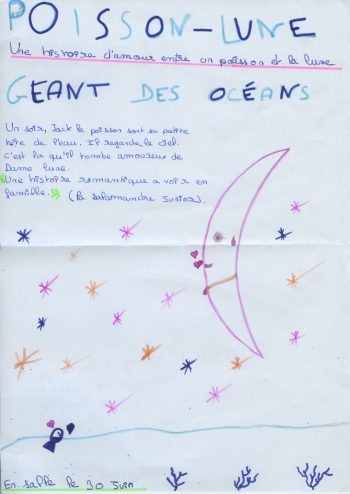 POISSON-LUNE
Une histoire d'amour entre un poisson et la lune
GEANT DES OCÉANS
Un soir, Jack le poisson sort sa petite
tête de l'eau. Il regarde le ciel.
C'est là qu'il tombe amoureux de
Dame lune.
"Une histoire romantique a voir en
famille." (La salamandre Juniors).
En salle le 30 Juin